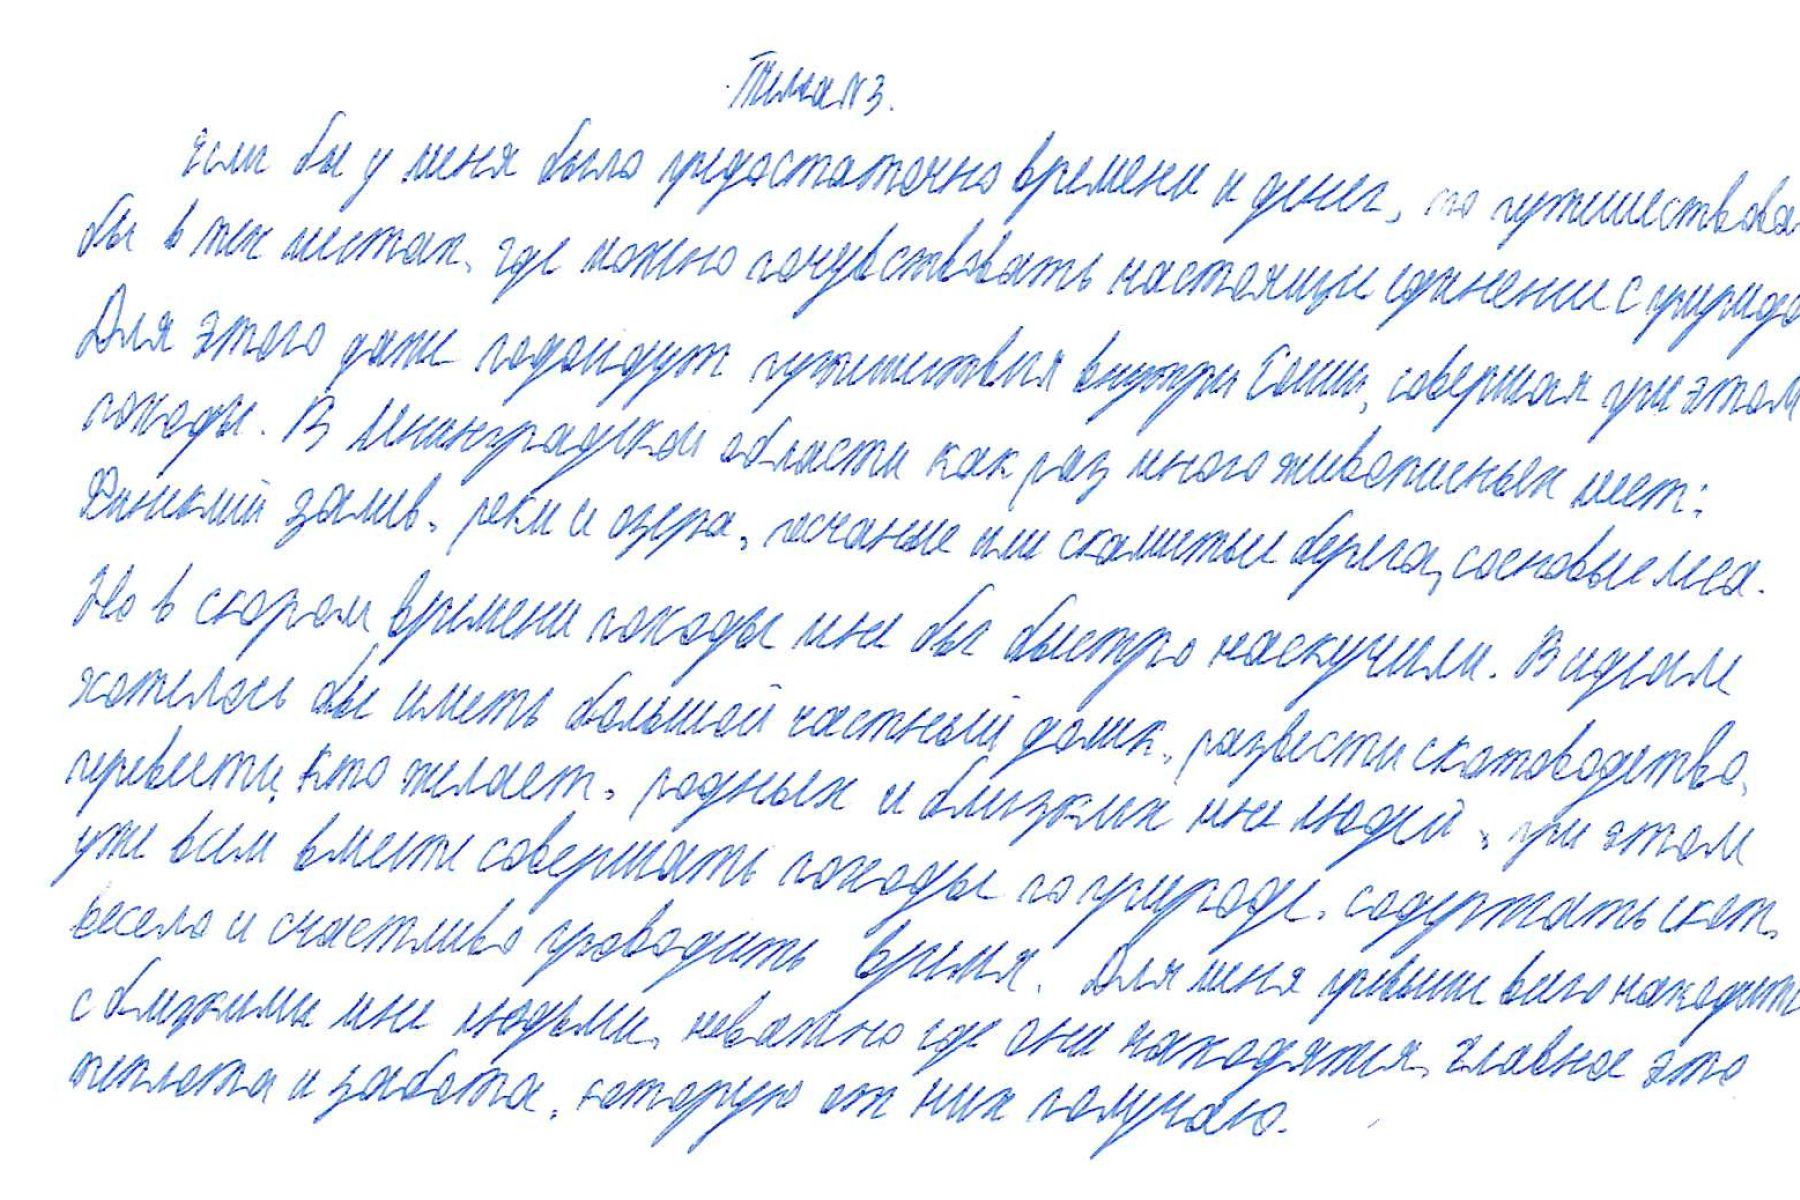 Тема N3.
Если бы у меня было предостаточно времени и денег, то путешествова
бы в тех местах, где можно почувствовать настоящие единение с природо
Для этого даже подойдут путешествия внутри России, совершая при этом
походы. В Ленинградской области как раз много живописных мест:
Финский залив, реки и озера, песчаные или скалистые берега, сосновые леса.
Но в скором времени походы мне бы быстро наскучили. В идеале
хотелось бы иметь большой частный домик, развести скотоводство,
перевести, кто желает, родных и близких мне людей, при этом
уже всем вместе совершать походы по природе, содержать скот,
весело и счастливо проводить время. Для меня превыше всего находит
с близкими мне людьми, неважно где они находятся, главное это
теплота и забота, которую от них получаю.